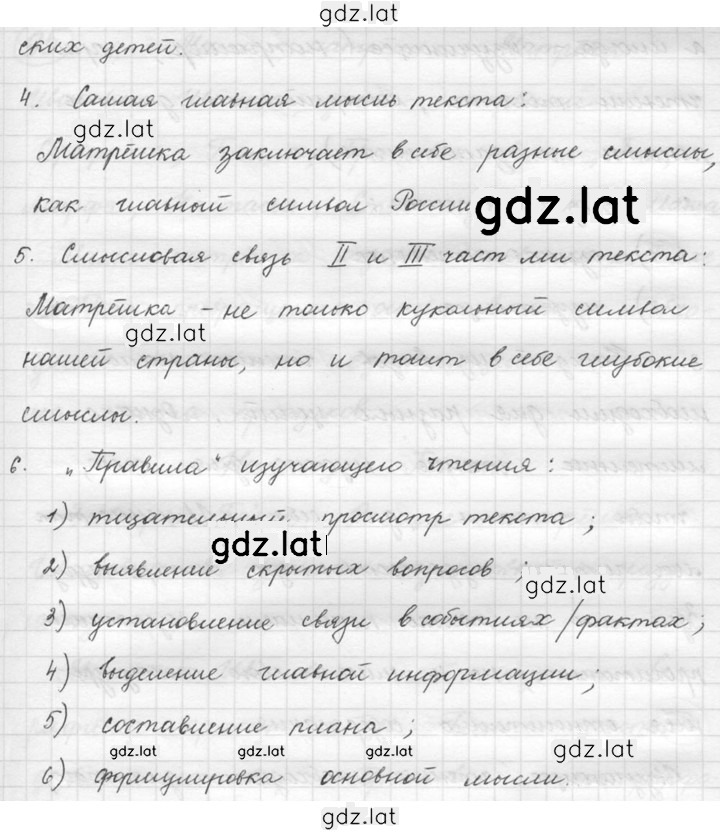 gdz.lat
ских детей.
4. Самая главная мысль текста:
gdz.lat
Матрёшка заключает в себе разные смыслы,
как главный символ России
gdz.lat
5. Смысловая связь II и III част ми текста:
Матрёшка - не только кукольный символ
gdz.lat
нашей страны, но и таит в себе глубокие
смыслы.
6. „Правила“ изучающего чтения:
1) тщательный просмотр текста;
gdz.lat
2) выявление скрытых вопросов;
gdz.lat
3) установление связи в событиях/фактах;
4) выделение главной информации;
5) составление плана;
gdz.lat gdz.lat gdz.lat gdz.lat
6) формулировка основной мысли.
gdz.lat